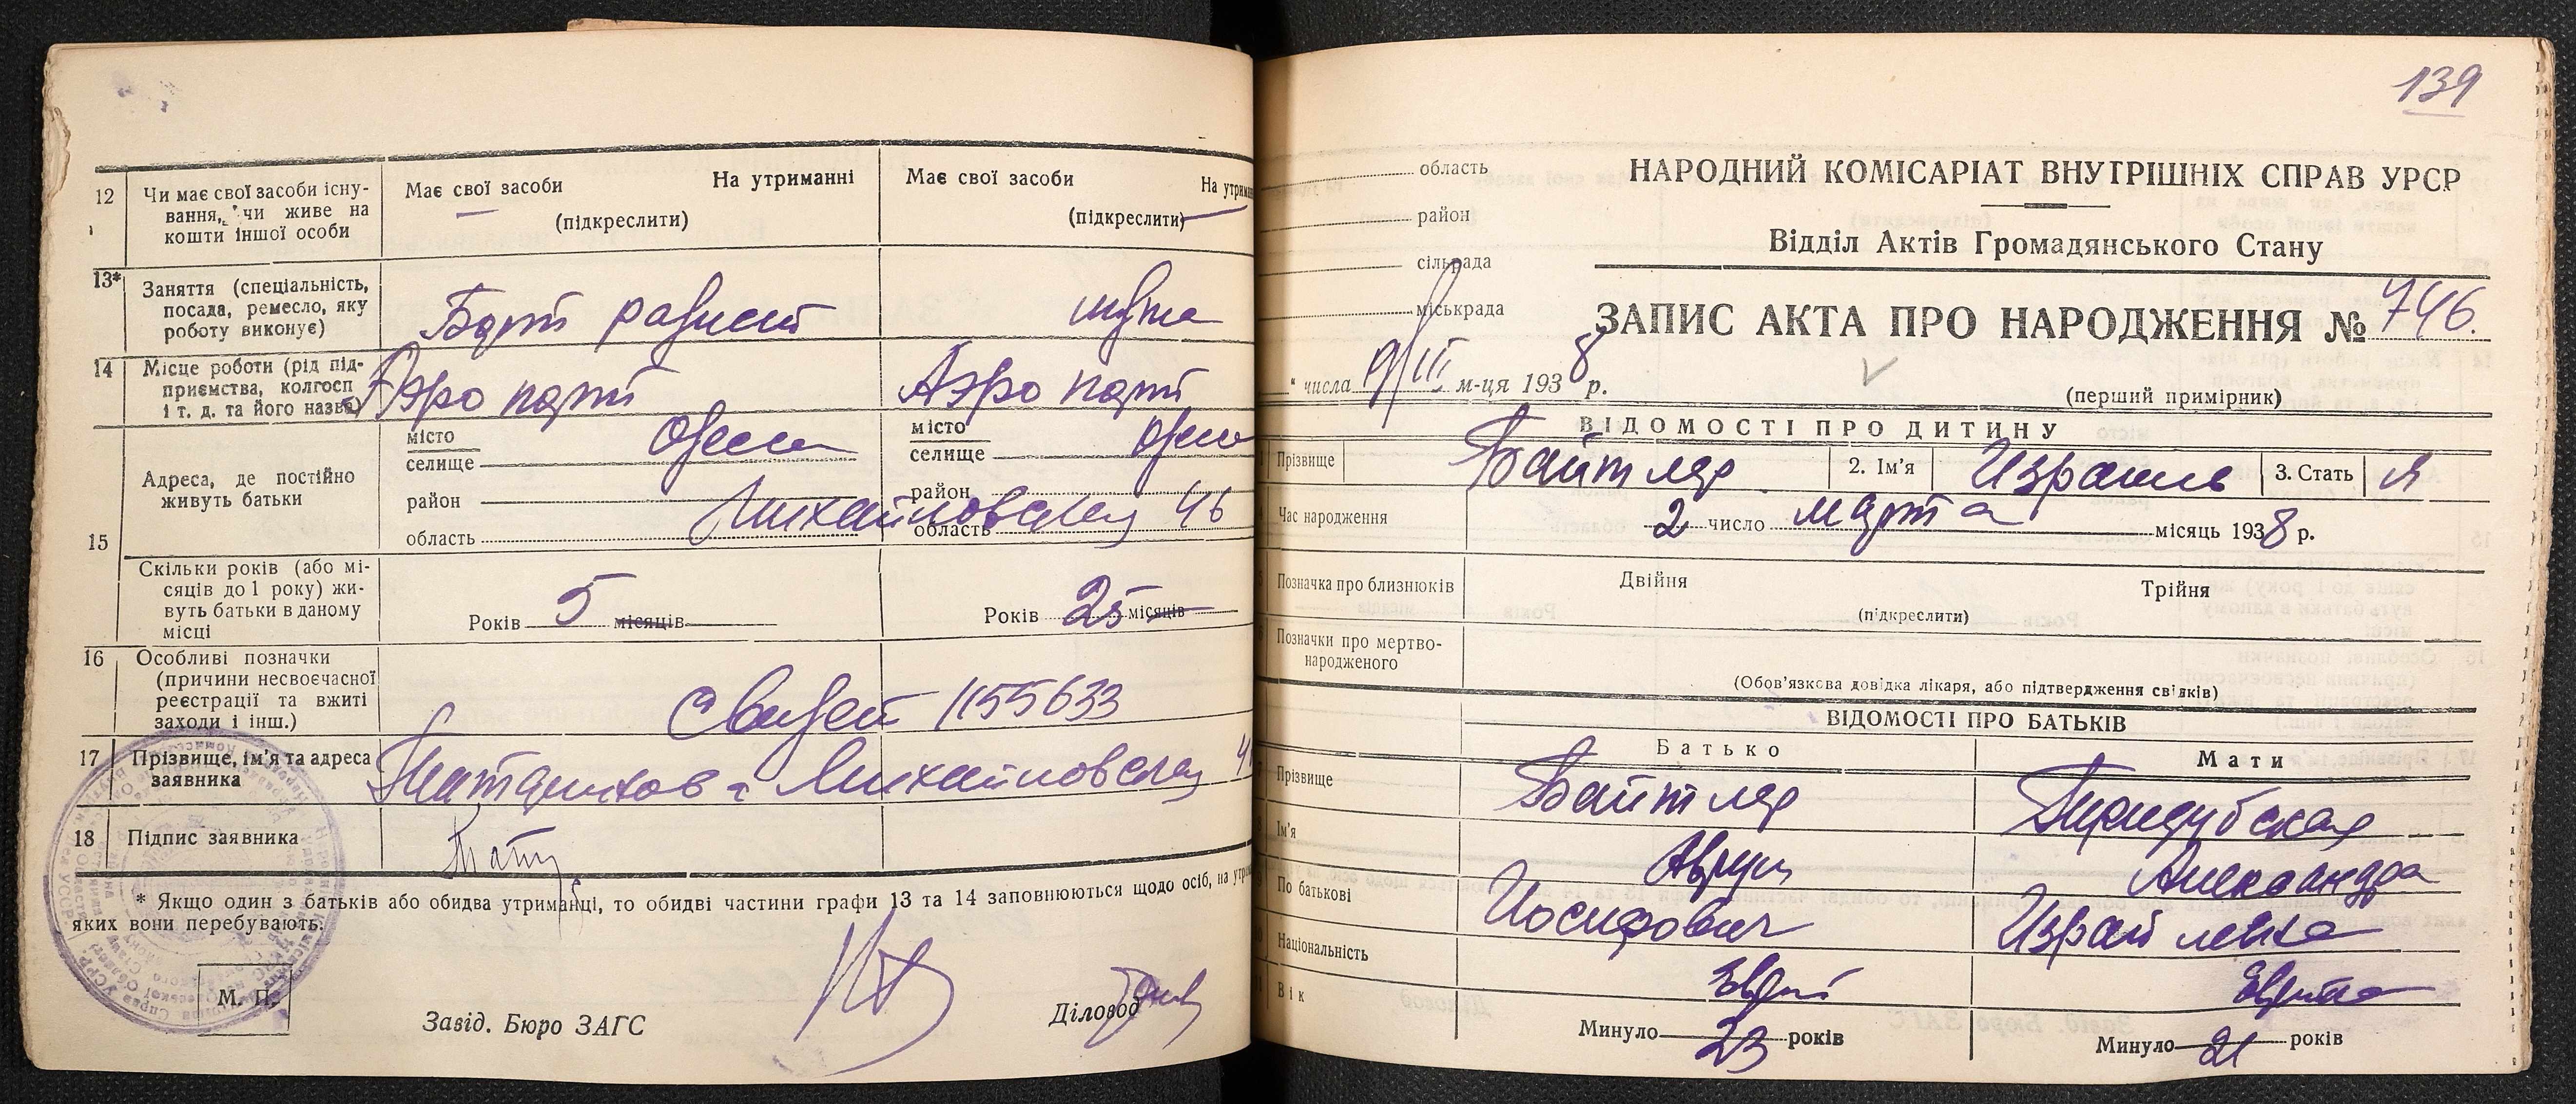 12
Чи має свої засоби існу-
вання, чи живе на
кошти іншої особи
Має свої засоби
На утриманні
(підкреслити)
Має свої засоби
На утриман
(підкреслити)
13*
Заняття (спеціальність,
посада, ремесло, яку
роботу виконує)
Борт радист
мужа
14
Місце роботи (рід під-
приємства, колгосп
і т. д. та його назва)
Аэро порт
Аэро порт
15
Адреса, де постійно
живуть батьки
місто
селище
Одесса
район
область
місто
селище
Одесса
район
Михайловская 46
область
Скільки років (або мі-
сяців до 1 року) жи-
вуть батьки в даному
місці
Років 5 місяців
Років 25 місяців
16
Особливі позначки
(причини несвоєчасної
реєстрації та вжиті
заходи і інш.)
Свидет 1155633
17
Прізвище, ім'я та адреса
заявника
Михайловская
18
Підпис заявника
* Якщо один з батьків або обидва утриманці, то обидві частини графи 13 та 14 заповнюються щодо осіб, на утрим
яких вони перебувають.
М. П.
Завід. Бюро ЗАГС
Діловод
139
область
район
сільрада
міськрада
" числа 9/III м-ця 1938 р.
НАРОДНИЙ КОМІСАРІАТ ВНУТРІШНІХ СПРАВ УРСР
Відділ Актів Громадянського Стану
ЗАПИС АКТА ПРО НАРОДЖЕННЯ № 746.
(перший примірник)
ВІДОМОСТІ ПРО ДИТИНУ
Прізвище
Байтлер
2. Ім'я
Израиль
3. Стать
Час народження
2 число марта місяць 1938 р.
Позначка про близнюків
Двійня
Трійня
(підкреслити)
Позначки про мертво-
народженого
(Обов'язкова довідка лікаря, або підтвердження свідків)
ВІДОМОСТІ ПРО БАТЬКІВ
Батько
Мати
Прізвище
Байтлер
Ім'я
Аврум
Александра
По батькові
Иосифович
Израйлевна
Національність
Еврей
Еврейка
Вік
Минуло 23 років
Минуло 21 років